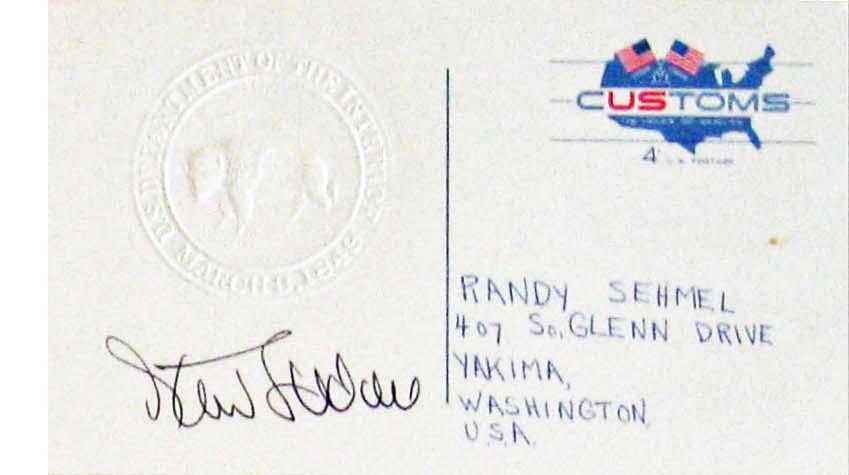 U.S. DEPARTMENT OF THE INTERIOR
MARCH 3, 1849
CUSTOMS
4¢ U.S. POSTAGE
RANDY SEHMEL
407 So. GLENN DRIVE
YAKIMA,
WASHINGTON
U.S.A.